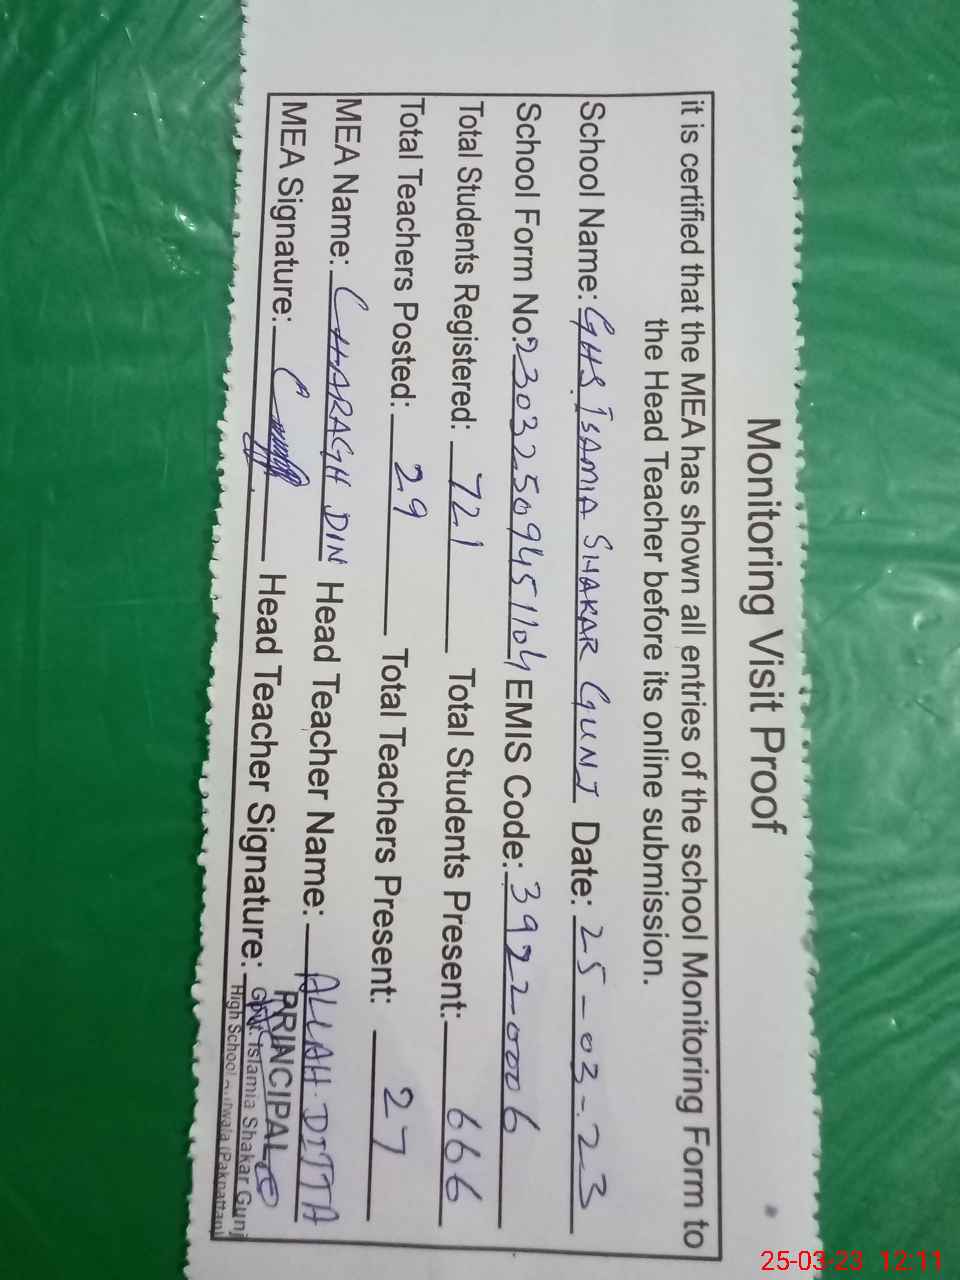 Monitoring Visit Proof
it is certified that the MEA has shown all entries of the school Monitoring Form to
the Head Teacher before its online submission.
School Name: GHS ISAMIA SHAKAR GUNJ Date: 25-03-23
School Form No: 23032509451104 EMIS Code: 39220006
Total Students Registered: 721 Total Students Present: 666
Total Teachers Posted: 29 Total Teachers Present: 27
MEA Name: CHARAGH DIN Head Teacher Name: ALLAH DITTA
MEA Signature: Head Teacher Signature:
PRINCIPAL
Govt. Islamia Shakar Gunj
High School (Pakpattan)
25-03-23 12:11